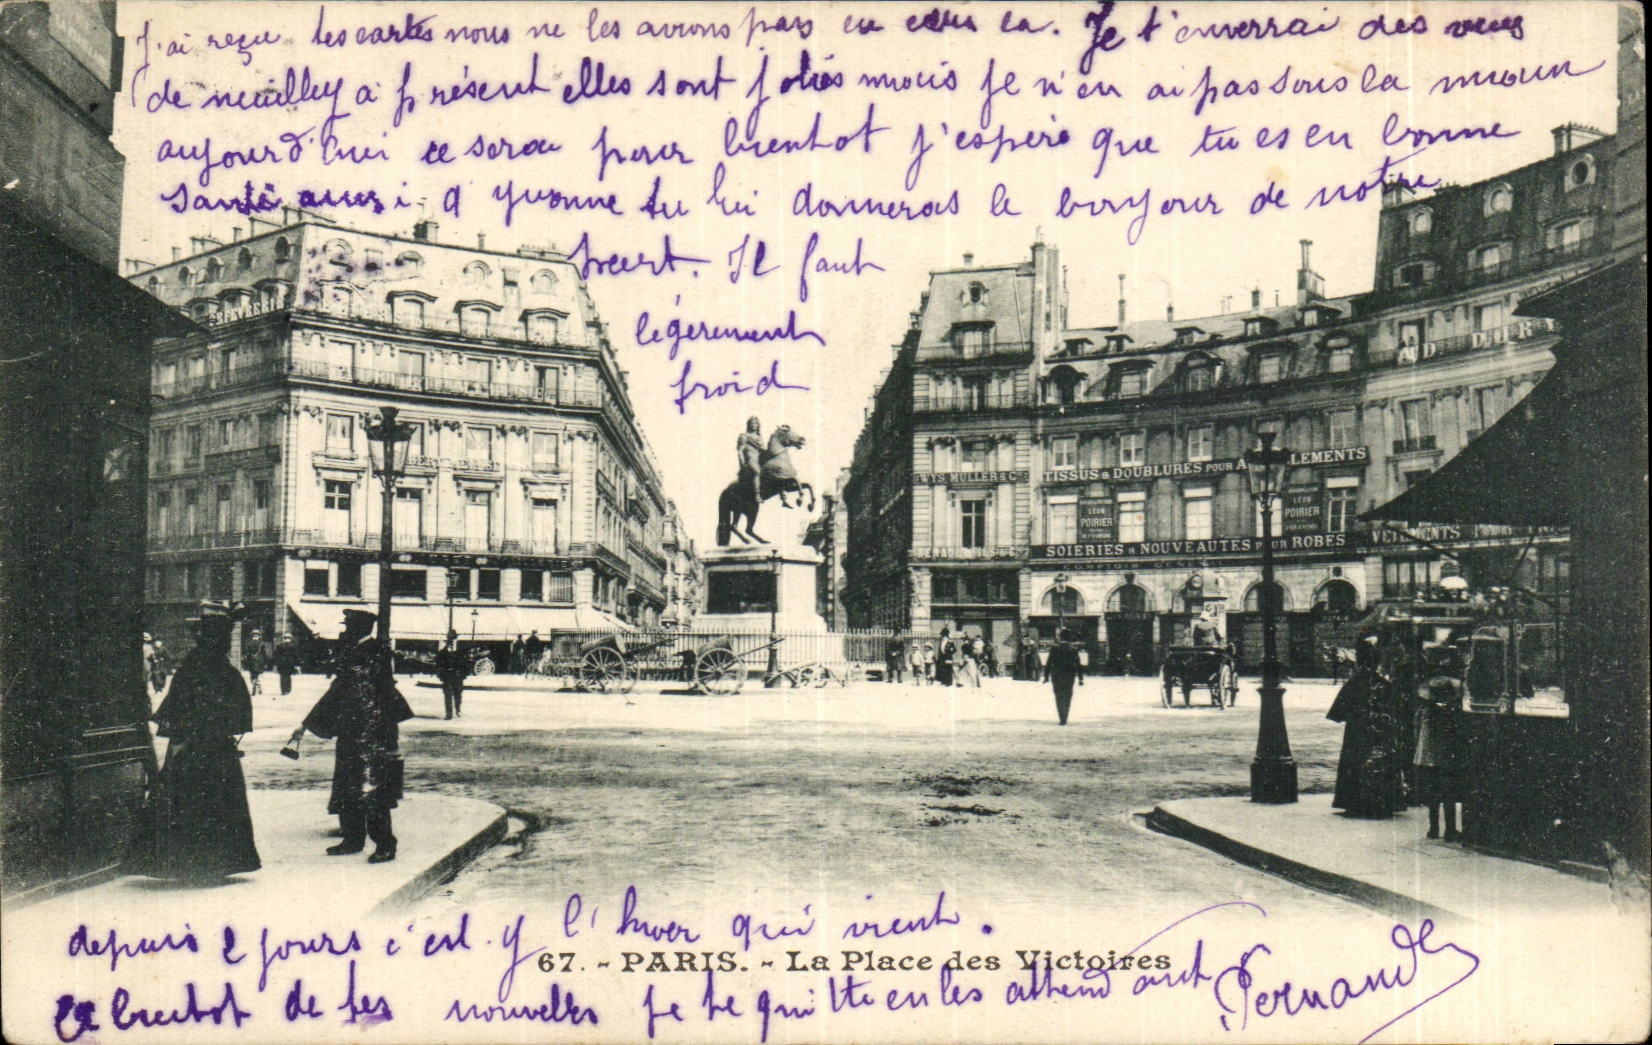 J'ai reçu tes cartes nous ne les avions pas eu ceux la. Je t'enverrai des vues
de neuilley a présent elles sont jolies mais je n'en ai pas sous la main
aujourd'hui ce sera pour bientot j'espère que tu es en bonne
santé aussi d yvonne tu lui donneras le bonjour de notre
part. Il faut
légerement
froid
ORFEVRERIE
AD. DURY
WYS MULLER & Cie
TISSUS & DOUBLURES POUR A LEMENTS
LÉON
POIRIER
LÉON
POIRIER
SOIERIES & NOUVEAUTES POUR ROBES
VETEMENTS
COMPTOIR GENERAL
depuis 2 jours c'est y l'hiver qui vient.
67. - PARIS. - La Place des Victoires
a bientot de tes nouvelles je te quitte en les attendant Fernande